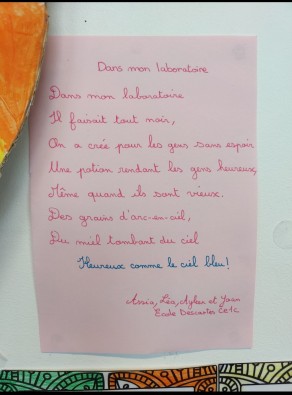 Dans mon laboratoire
Dans mon laboratoire
Il faisait tout noir,
On a créé pour les gens sans espoir,
Une potion rendant les gens heureux,
Même quand ils sont vieux.
Des grains d'arc-en-ciel,
Du miel tombant du ciel
Heureux comme le ciel bleu!
Assia, Léa, et
École Descartes Ce1c